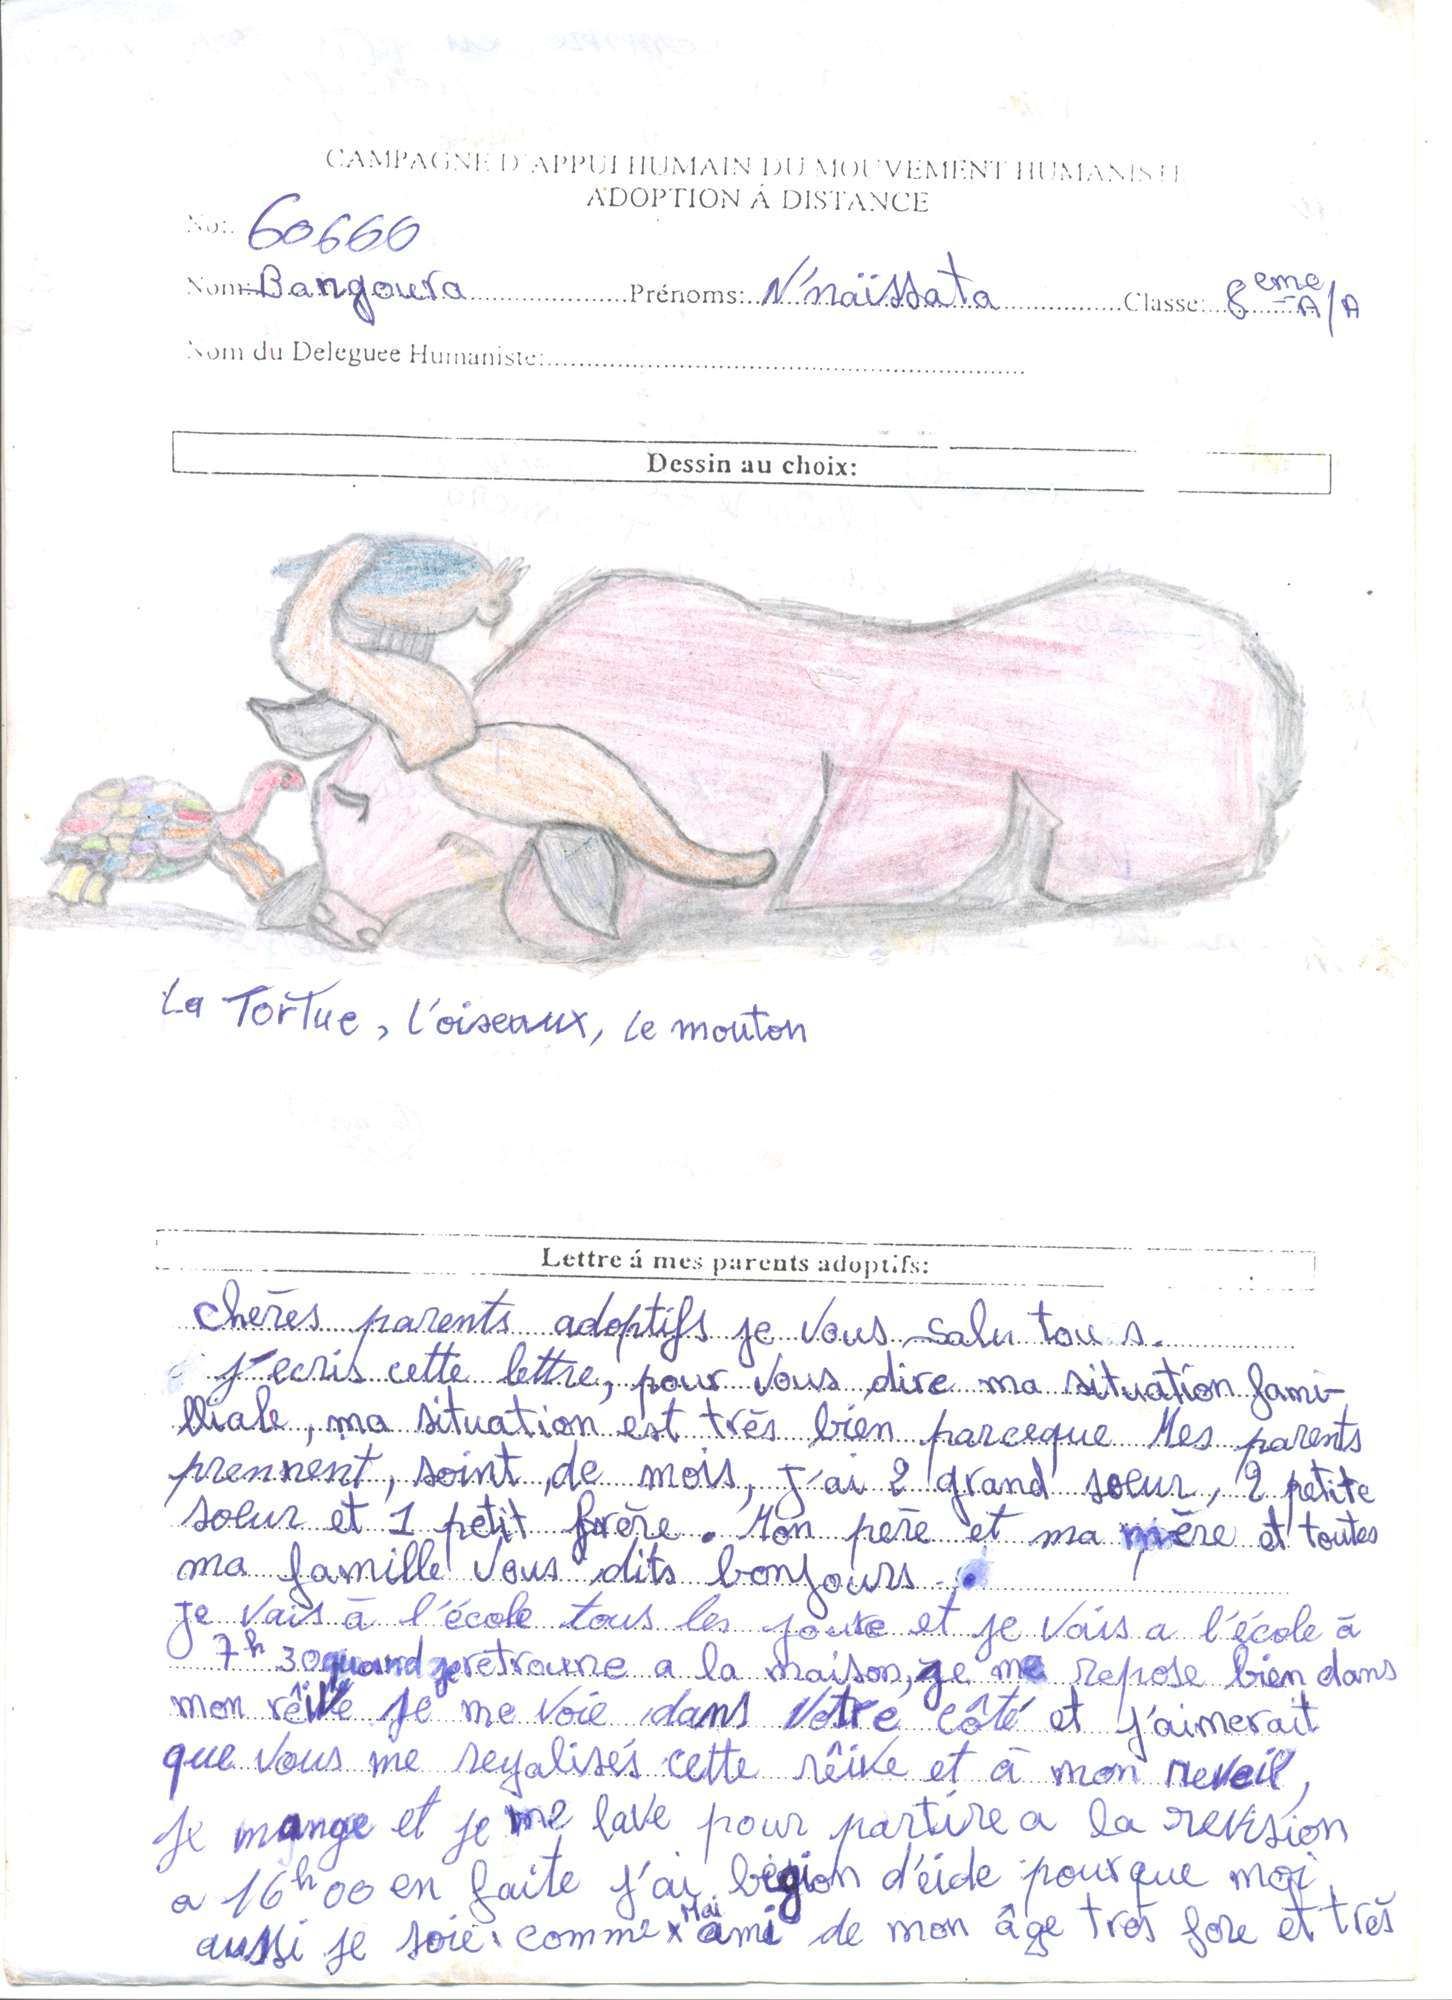 CAMPAGNE D'APPUI HUMAIN DU MOUVEMENT HUMANISTE
ADOPTION Á DISTANCE
No:. 60660
Nom: Bangoura Prénoms: N'naïssata Classe: 8 eme A/A
Nom du Deleguee Humaniste:
Dessin au choix:
La Tortue, l'oiseaux, le mouton
Lettre á mes parents adoptifs:
chères parents adoptifs je vous salu tous.
j'ecris cette lettre, pour vous dire ma situation fami-
lliale, ma situation est très bien parceque Mes parents
prennent, soint de mois, J'ai 2 grand soeur, 2 petite
soeur et 1 petit frère. Mon père et ma mère et toutes
ma famille vous dits bonjours.
je vais à l'école tous les jours et je vais a l'école à
7h 30 quand je retroune a la maison, je me repose bien dans
mon rêive je me voie dans votre côté et j'aimerait
que vous me reyalisés cette rêive et à mon reveil,
je mange et je me lave pour partire a la revision
a 16h00 en faite j'ai d'eide pourque moi
aussi je soie comme Mai ami de mon âge très fore et très